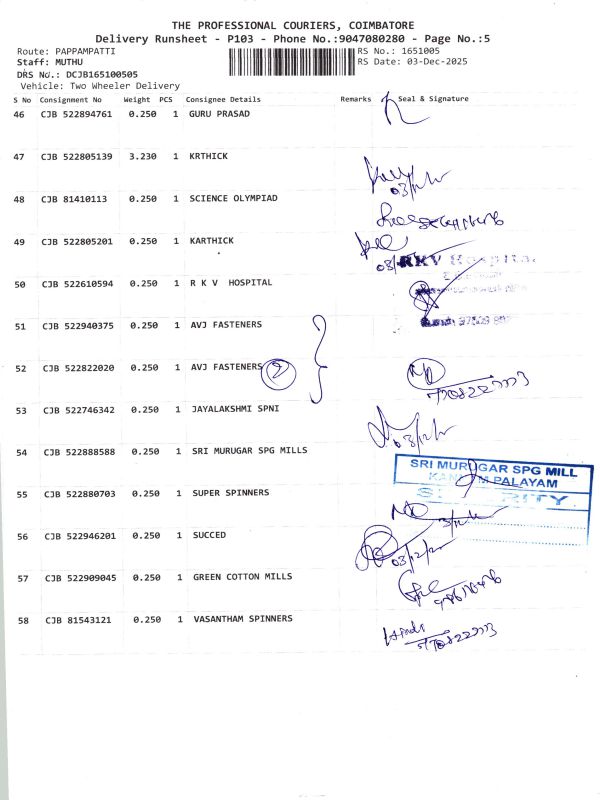 THE PROFESSIONAL COURIERS, COIMBATORE
Delivery Runsheet - P103 - Phone No.:9047080280 - Page No.:5
Route: PAPPAMPATTI RS No.: 1651005
Staff: MUTHU RS Date: 03-Dec-2025
DRS No.: DCJB165100505
Vehicle: Two Wheeler Delivery
S No Consignment No Weight PCS Consignee Details Remarks Seal & Signature
46 CJB 522894761 0.250 1 GURU PRASAD
47 CJB 522805139 3.230 1 KRTHICK
48 CJB 81410113 0.250 1 SCIENCE OLYMPIAD
49 CJB 522805201 0.250 1 KARTHICK
RKV Hospital
50 CJB 522610594 0.250 1 R K V HOSPITAL
51 CJB 522940375 0.250 1 AVJ FASTENERS
52 CJB 522822020 0.250 1 AVJ FASTENERS 2
53 CJB 522746342 0.250 1 JAYALAKSHMI SPNI
03/12/
54 CJB 522888588 0.250 1 SRI MURUGAR SPG MILLS
SRI MURUGAR SPG MILL
PALAYAM
SECURITY
55 CJB 522880703 0.250 1 SUPER SPINNERS
56 CJB 522946201 0.250 1 SUCCED
03/12/
57 CJB 522909045 0.250 1 GREEN COTTON MILLS
58 CJB 81543121 0.250 1 VASANTHAM SPINNERS